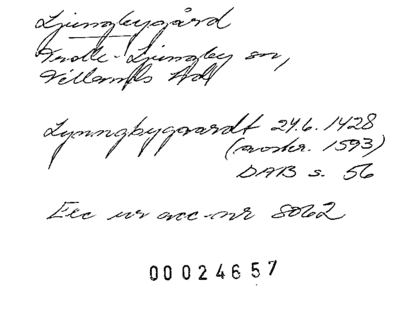 Ljungbygård
Trolle-Ljungby sn,
Villands hd
Lynngbygaardt 24.6.1428
(avskr. 1593)
DAB s. 56
Exc ur acc-nr 8062
00024657